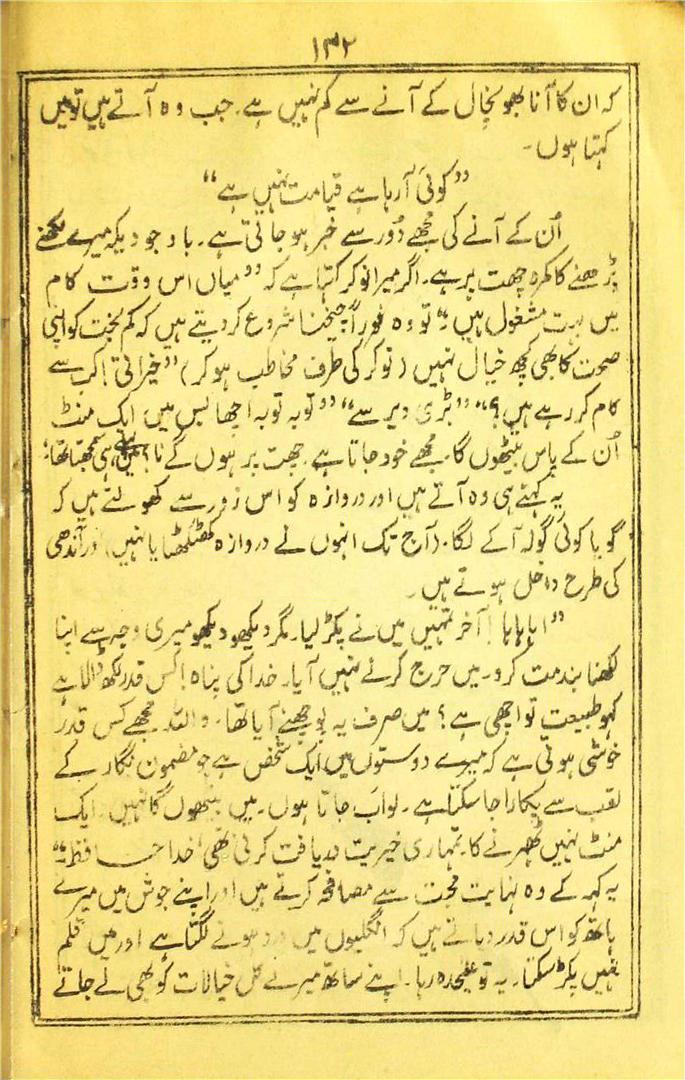 ۱۳۲
کہ ان کا آنا بھونچال کے آنے سے کم نہیں ہے۔ جب وہ آتے ہیں تو میں
کہتا ہوں۔
”کوئی آ رہا ہے قیامت نہیں ہے“
اُن کے آنے کی مجھے دُور سے خبر ہو جاتی ہے۔ باوجودیکہ میرے لکھنے
پڑھنے کا کمرہ چھت پر ہے۔ اگر میرا نوکر کہتا ہے کہ ”میاں اس وقت کام
میں بہت مشغول ہیں“ تو وہ فوراً چیخنا شروع کر دیتے ہیں کہ کم بخت کو اپنی
صحت کا بھی کچھ خیال نہیں (نوکر کی طرف مخاطب ہو کر) ”خیراتی! کب سے
کام کر رہے ہیں؟“ ”بڑی دیر سے“ ”توبہ توبہ! اچھا بس میں ایک منٹ
اُن کے پاس بیٹھوں گا۔ مجھے خود جانا ہے۔ چھت پر ہوں گے نا؟ میں پہلے ہی سمجھتا تھا“
یہ کہتے ہی وہ آتے ہیں اور دروازہ کو اس زور سے کھولتے ہیں کہ
گویا کوئی گولہ آ کے لگا۔ (آج تک انہوں نے دروازہ کھٹکھٹایا نہیں) اور آندھی
کی طرح داخل ہوتے ہیں۔
”اہاہاہا! آخر تمہیں میں نے پکڑ لیا۔ مگر دیکھو دیکھو میری وجہ سے اپنا
لکھنا بند مت کرو۔ میں حرج کرنے نہیں آیا۔ خدا کی پناہ! کس قدر لکھ ڈالا ہے
کہو طبیعت تو اچھی ہے؟ میں صرف یہ پوچھنے آیا تھا۔ واللہ مجھے کس قدر
خوشی ہوتی ہے کہ میرے دوستوں میں ایک شخص ہے جو مضمون نگار کے
لقب سے پکارا جا سکتا ہے۔ لو اب جاتا ہوں۔ میں بیٹھوں گا نہیں۔ ایک
منٹ نہیں ٹھہرنے کا۔ تمہاری خیریت دریافت کرنی تھی، خدا حافظ“
یہ کہہ کے وہ نہایت محبت سے مصافحہ کرتے ہیں اور اپنے جوش میں میرے
ہاتھ کو اس قدر دباتے ہیں کہ انگلیوں میں درد ہونے لگتا ہے اور میں قلم
نہیں پکڑ سکتا۔ یہ تو علیحدہ رہا۔ اپنے ساتھ میرے کل خیالات کو بھی لے جاتے